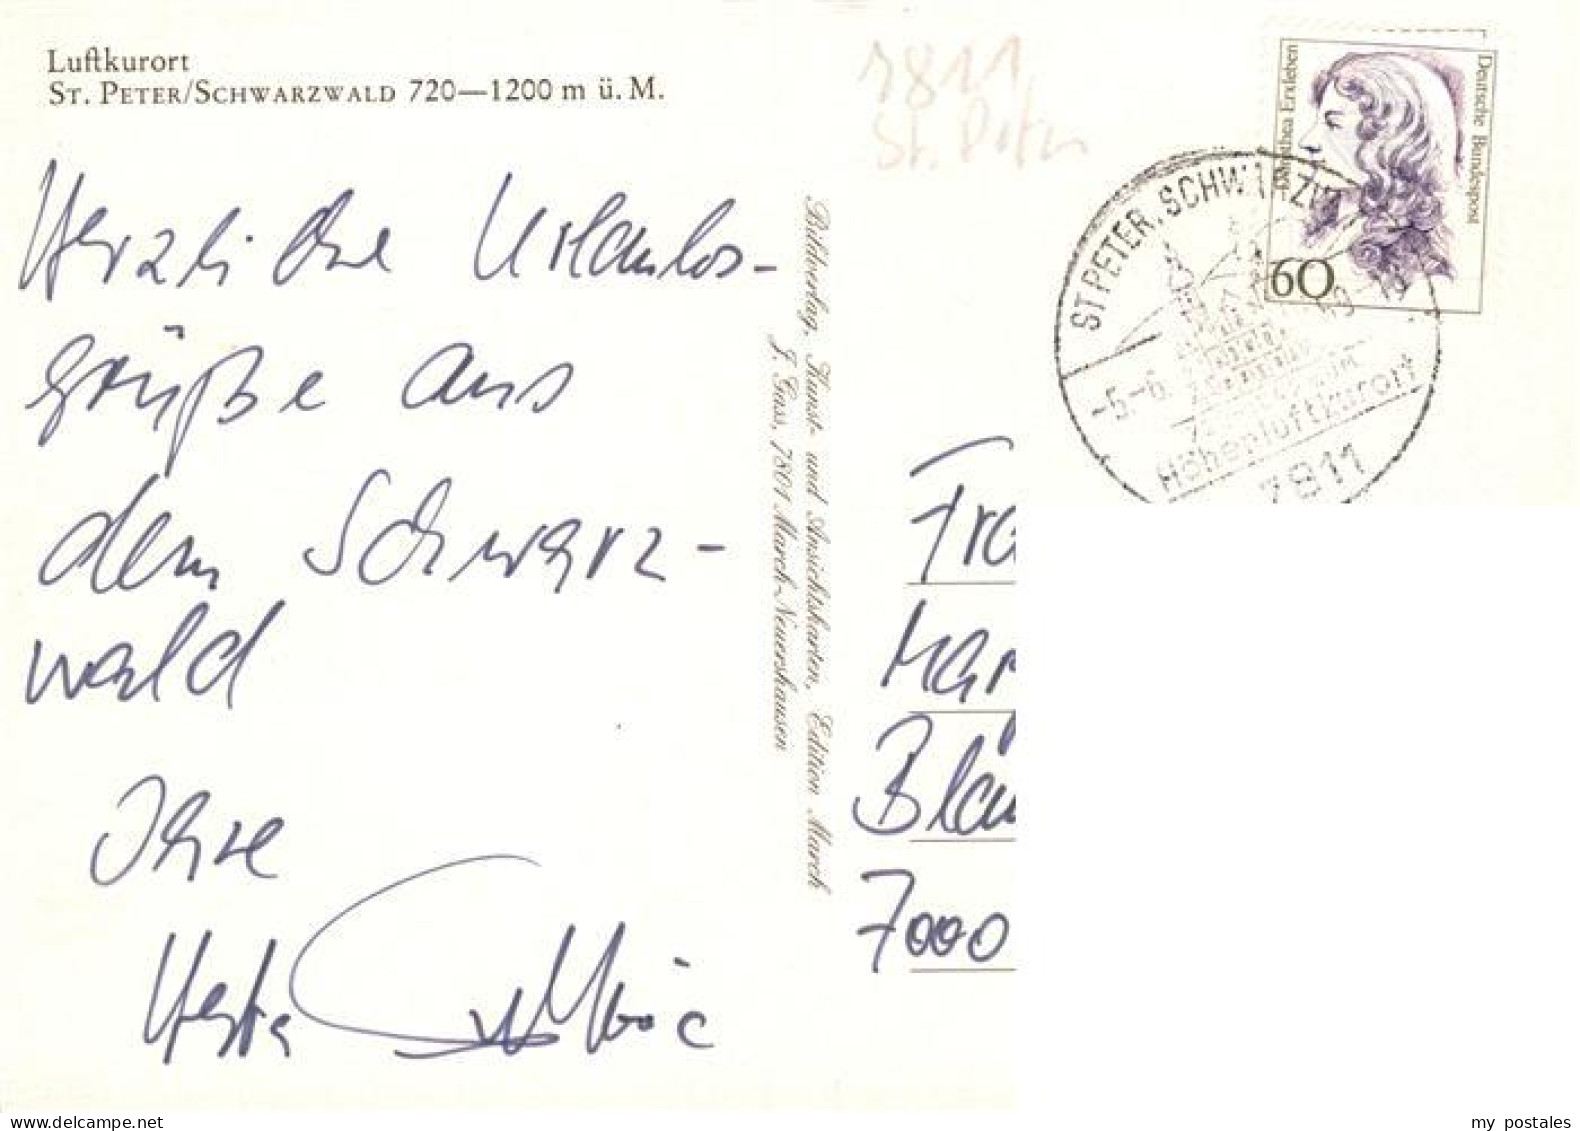 Luftkurort
ST. PETER/SCHWARZWALD 720—1200 m ü. M.
7811
St. Peter
Herzliche Urlaubs-
grüße aus
dem Schwarz-
wald
Ihre
Herta
Bildverlag, Kunst- und Ansichtskarten, Edition March
J. Gass, 7801 March-Neuershausen
Dorothea Erxleben
Deutsche Bundespost
60
ST PETER, SCHWARZW
-5.-6.
Höhenluftkurort
7811
Fra
Mar
Blau
7000
my postales